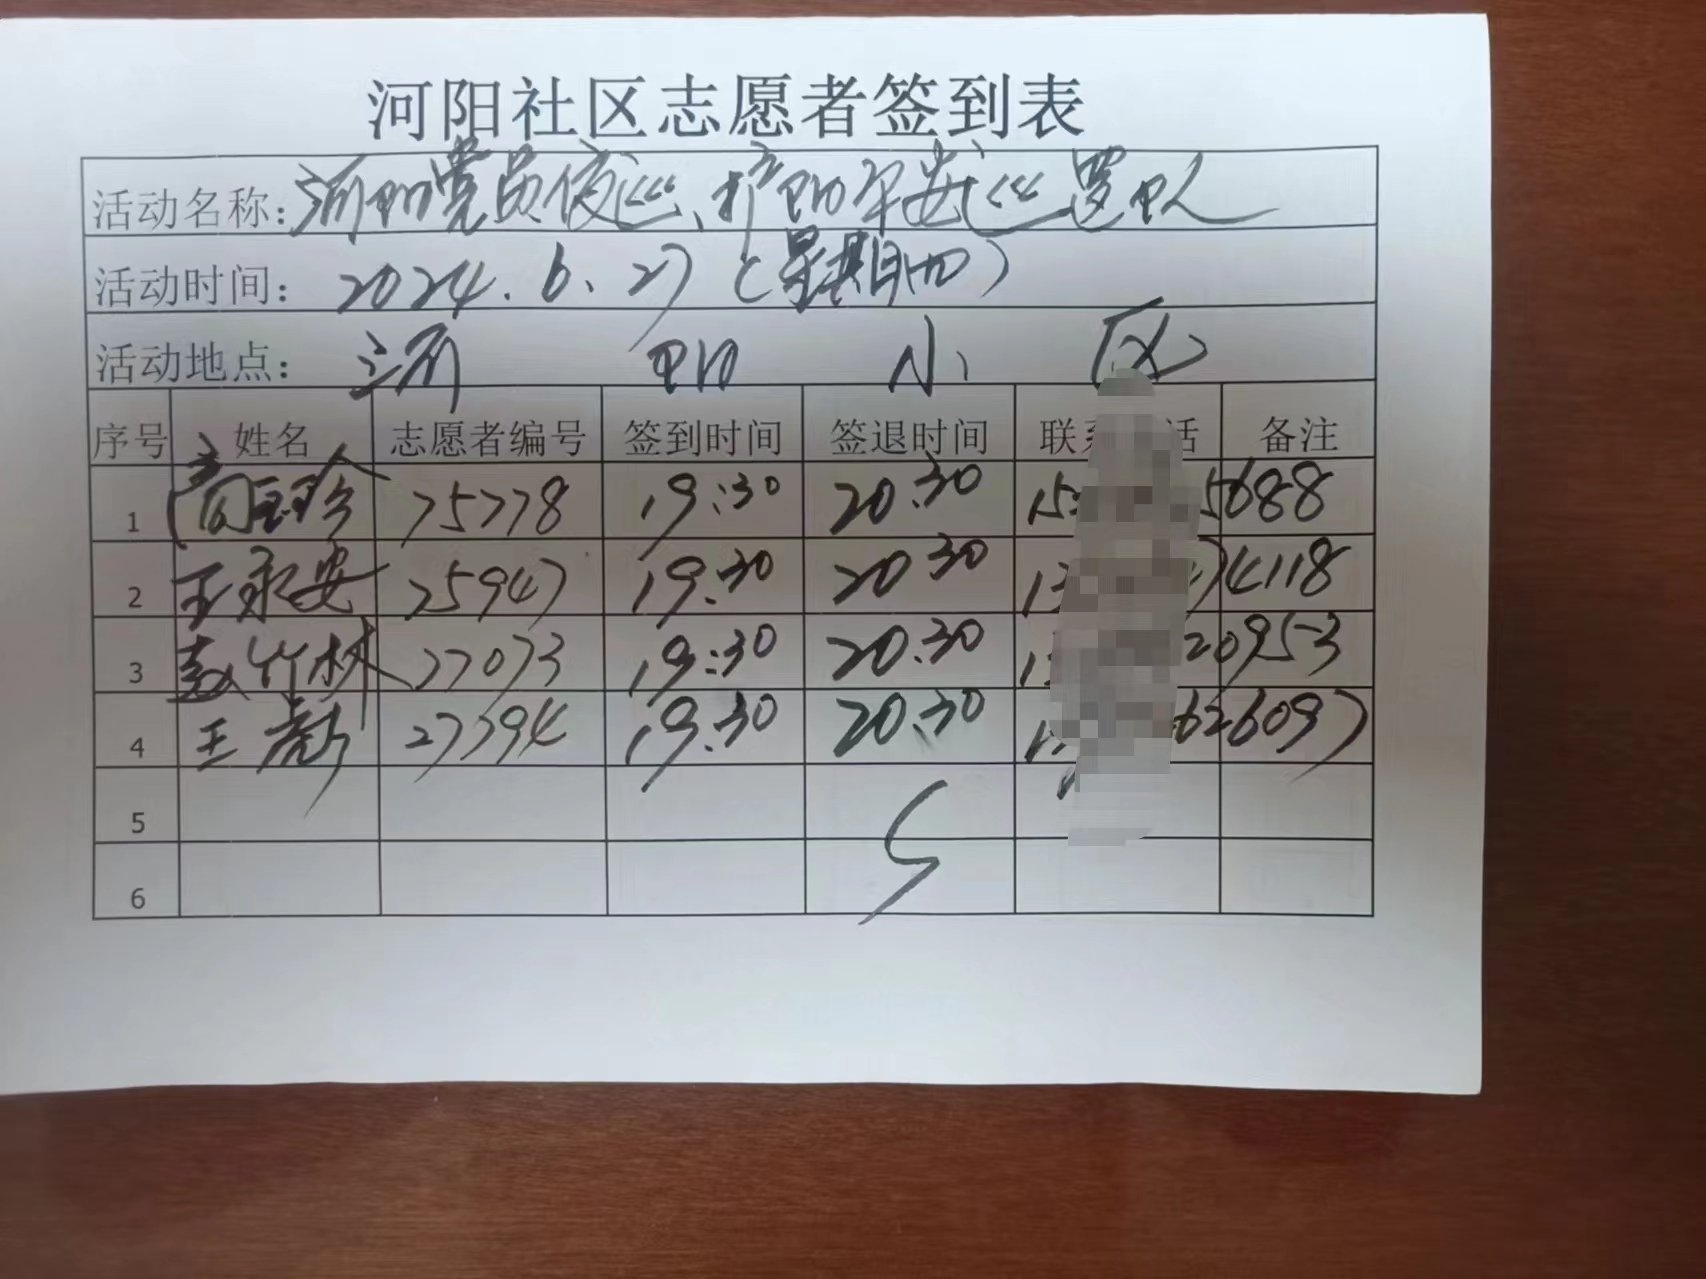 河阳社区志愿者签到表
活动名称：河阳党员夜巡、护阳平安巡逻队
活动时间：2024.6.27（星期四）
活动地点：河阳小区
序号 姓名 志愿者编号 签到时间 签退时间 联系 话 备注
1 高玉珍 75778 19:30 20:30 15 5688
2 王永安 25947 19:30 20:30 13 74118
3 赵竹林 27073 19:30 20:30 1 20953
4 王 27394 19:30 20:30 1 626097
5
6